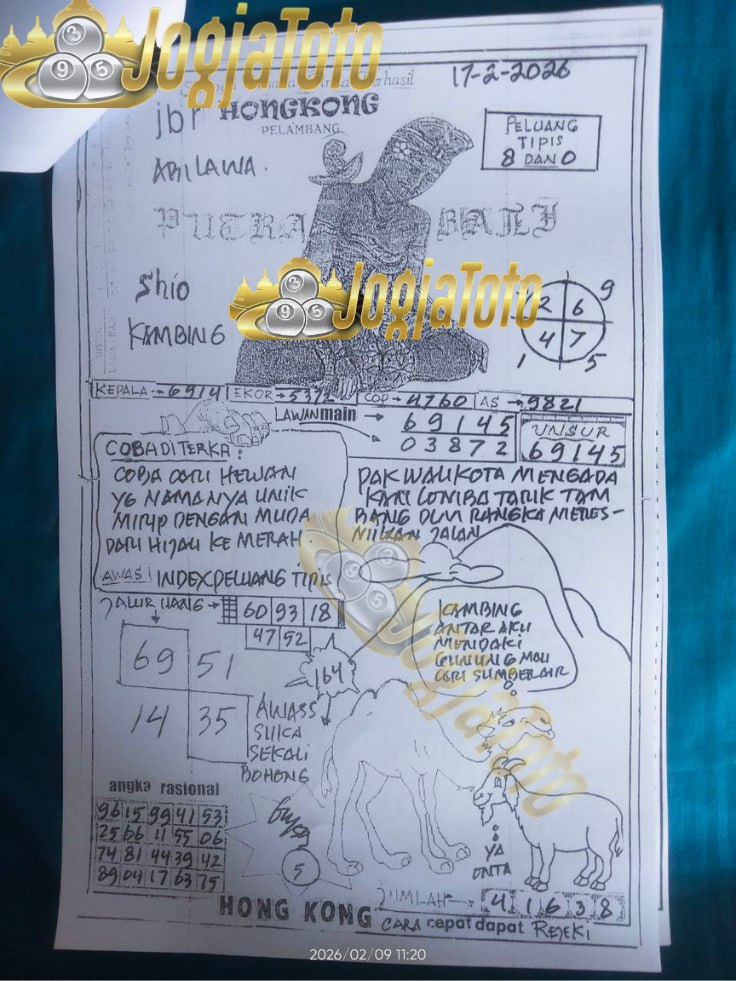 JogjaToto
17-2-2026
jbr HONGKONG
PELAMBANG
PELUANG
TIPIS
8 DAN 0
ABILAWA.
PUTRA BALI
Shio
KAMBING
JogjaToto
2 6 9
4 7
1 5
KEPALA → 6914 EKOR → 5372 COP → 4760 AS → 9821
LAWAN main → 69145
03872
UNSUR
69145
COBA DITERKA:
COBA CARI HEWAN
YG NAMANYA UNIK
MIRIP DENGAN MUDA
DARI HIJAU KE MERAH.
AWASI INDEX PELUANG TIPIS
PAK WALIKOTA MENGADA
KAN LOMBA TARIK TAM
BANG DLM RANGKA MERES-
MIKAN JALAN
JALUR UANG → 60 93 18
47 52
69 51
14 35
164
KAMBING
ANTAR AKU
MENDAKI
GUNUNG MAU
CARI SUMBER AIR
AWASS
SUKA
SEKALI
BOHENG
JogjaToto
angka rasional
96 15 99 41 53
25 66 11 55 06
74 81 44 39 42
89 04 17 63 75
5
YA
ONTA
JIMLAH → 4 1 6 3 8
HONG KONG CARA cepat dapat REJEKI
2026/02/09 11:20